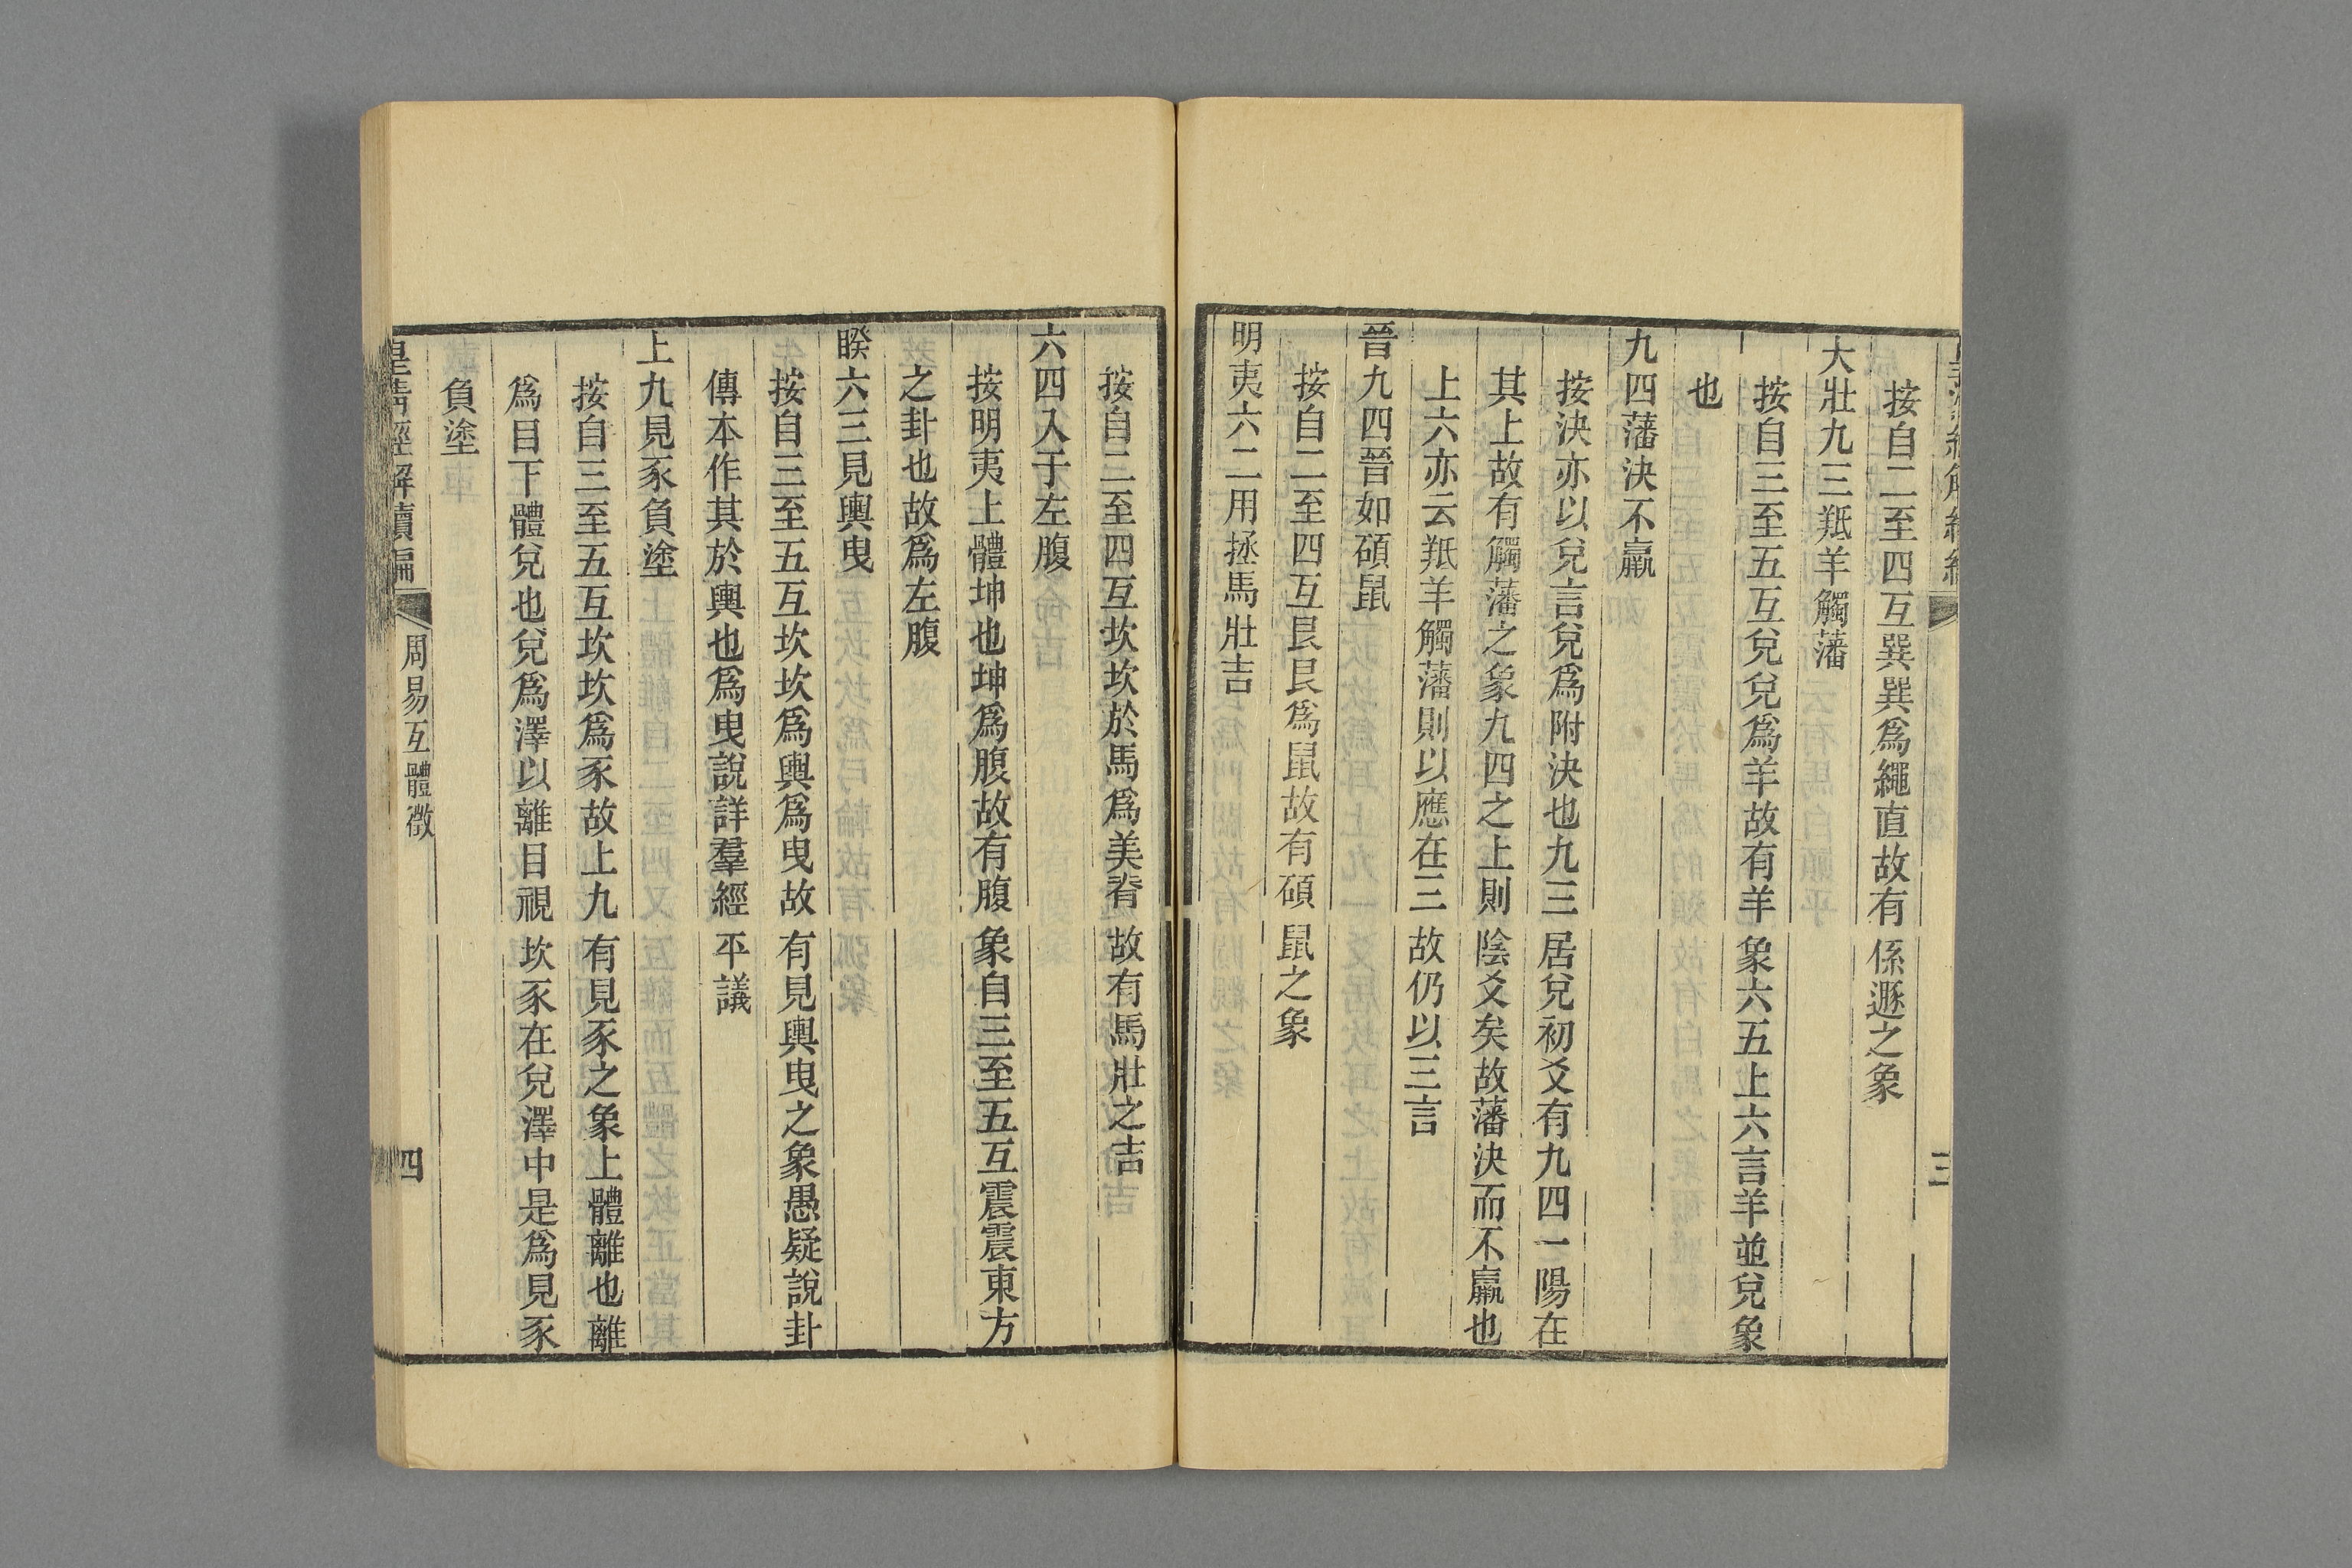 按自二至四互巽巽爲繩直故有係遯之象
大壯九三羝羊觸藩
按自三至五互兌兌爲羊故有羊象六五上六言羊並兌象
也
九四藩決不羸
按決亦以兌言兌爲附決也九三居兌初爻有九四一陽在
其上故有觸藩之象九四之上則陰爻矣故藩決而不羸也
上六亦云羝羊觸藩則以應在三故仍以三言
晉九四晉如碩鼠
按自二至四互艮艮爲鼠故有碩鼠之象
明夷六二用拯馬壯吉
三
按自二至四互坎坎於馬爲美脊故有馬壯之吉
六四入于左腹
按明夷上體坤也坤爲腹故有腹象自三至五互震震東方
之卦也故爲左腹
睽六三見輿曳
按自三至五互坎坎爲輿爲曳故有見輿曳之象愚疑說卦
傳本作其於輿也爲曳說詳羣經平議
上九見豕負塗
按自三至五互坎坎爲豕故上九有見豕之象上體離也離
爲目下體兌也兌爲澤以離目視坎豕在兌澤中是爲見豕
負塗
皇清經解續編
周易互體徵
四